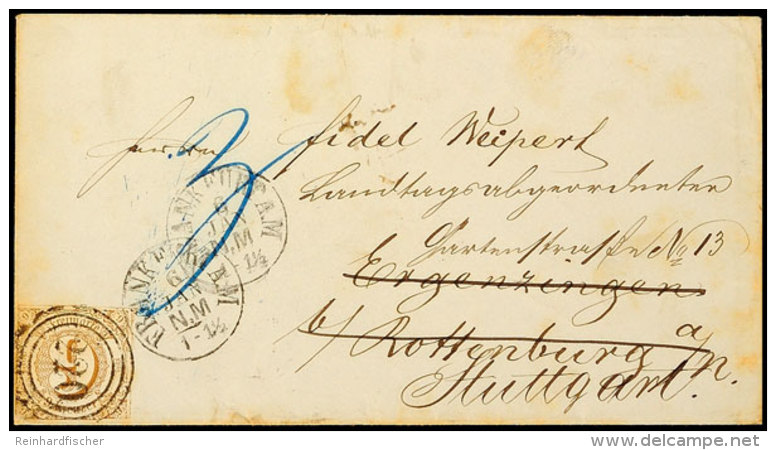 Herrn Fidel Weipert
Landtagsabgeordneter
Gartenstraße No 13
Ergenzingen
b/ Rottenburg a/N.
Stuttgart.
FRANKFURT A M
6
JAN
N.M
1-1½
FRANKFURT A M
6
JAN
N.M
1-1½
220
3
Reinhardfischer
delcampe.net